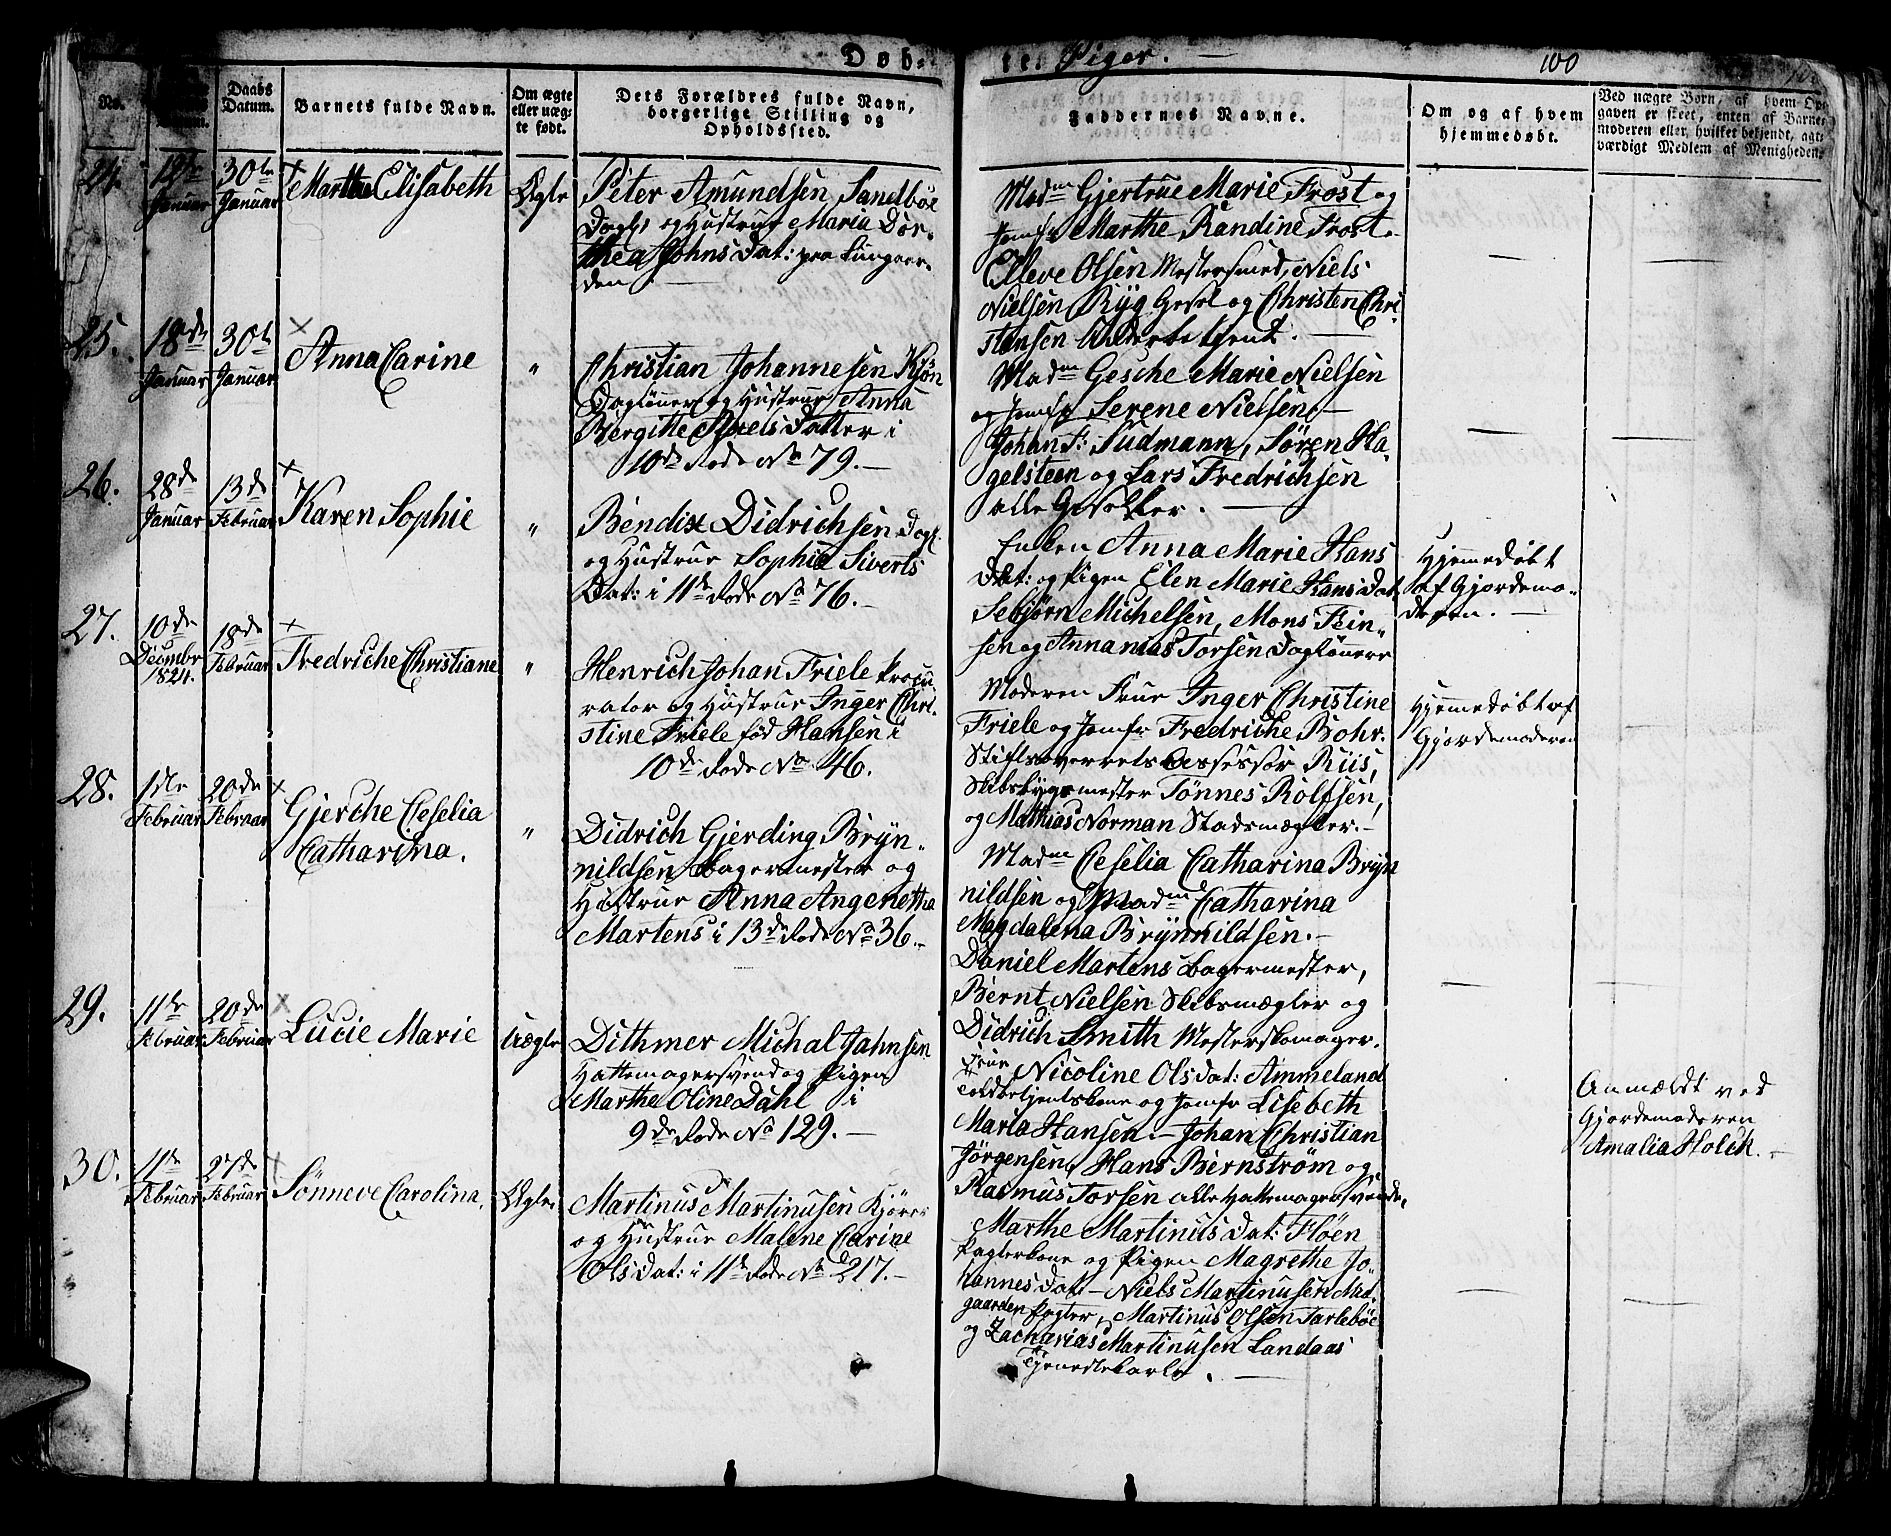 Døb-
te: Piger. —
100
No.
Daabs
Datum.
Barnets fulde Navn.
Om ægte
eller uæg-
te født.
Dets Forældres fulde Navn,
borgerlige Stilling og
Opholdssted.
Faddernes Navne.
Om og af hvem
hjemmedøbt.
Ved uægte Børn, af hvem Op-
gaven er skeet, enten af Barne-
moderen eller, hvilket bekjendt, agt-
værdigt Medlem af Menigheden.
24.
Januar
30te
Januar
Marthe Elisabeth
Ægte
Peter Amundsen Sandbøe
Dagl: og Hustrue Maria Dor-
thea Johns Dat:
den —
Madme Gjertrue Marie Frost og
Jomfr Marthe Randine Frost.
Elleve Olsen Mestersmed, Niels
Nielsen Ryg Gesel og Christen Chri-
stensen
25.
18de
Januar
30te
Januar
Anna Carine
"
Christian Johannesen Kjøn
Dagløner og Hustrue Anna
Bergitte Niels Datter i
10de Rode No 79. —
Madme Gesche Marie Nielsen
og Jomfr Serene Nielsen, —
Johan F: Sudmann, Søren Ha-
gelsteen og Lars Fredrichsen
alle Geseller. —
26.
28de
Januar
13de
Februar
Karen Sophie
"
Bendix Didrichsen Dagl.
og Hustrue Sophie Siverts
Dat: i 11te Rode No 76. —
Enken Anna Marie Hans
Dat: og Pigen Elen Marie Hans Dat
Sebjørn Michelsen, Mons Fein-
sen og Annanias Torsen Daglønere
Hjemmedøbt
af Gjordemo-
deren. —
27.
10de
Decmbr
1824.
18de
Februar
Fredriche Christiane
"
Henrich Johan Friele Procu
rator og Hustrue Inger Chri-
stine Friele fød Hansen i
10de Rode No. 46.
Moderen Frue Inger Christine
Friele og Jomfr Fredriche Bohr.
Stiftsoverretsassessor Riis,
Skibsbygmester Tønnes Rolfsen,
og Mathias Norman Stadsmægler. —
Hjemmedøbt af
Gjordemoderen
28.
1ste
Februar
20de
Februar
Gjerche Ceselia
Catharina.
"
Didrich Gjerding Bryn-
nildsen Bagermester og
Hustrue Anna Angenetha
Martens i 13de Rode No 36. —
Madme Ceselia Catharina Bryn
nildsen og Madme Catharina
Magdalena Brynnildsen. —
Daniel Martens Bagermester,
Bernt Nielsen Skibsmægler og
Didrich Smith Mesterskomager.
29.
11te
Februar
20de
Februar
Lucie Marie
Uægte
Dithmer Michal Jahnsen
Hattemagersvend og Pigen
Marthe Oline Dahl i
9de Rode No 129. —
Frue Nicoline Ols Dat: Ammeland
Toldbetjentskone og Jomfr Lisebeth
Maria Hansen. — Johan Christian
Jørgensen, Hans Bernstrøm og
Rasmus Torsen alle Hattemagersvende.
Anmældt ved
Gjordemoderen
Amalia Holck. —
30.
11te
Februar
27de
Februar
Sønneve Carolina.
Ægte
Martinus Martinusen Kjører
og Hustrue Malene Carine
Ols Dat: i 11te Rode No 217. —
Marthe Martinus Dat: Fløen
Pagterkone og Pigen Magrethe Jo-
hannes Dat. — Niels Martinusen
gaarden Pagter, Martinus Olsen Tarlebøe
og Zacharias Martinusen Landaas
Tjenestekarle. —